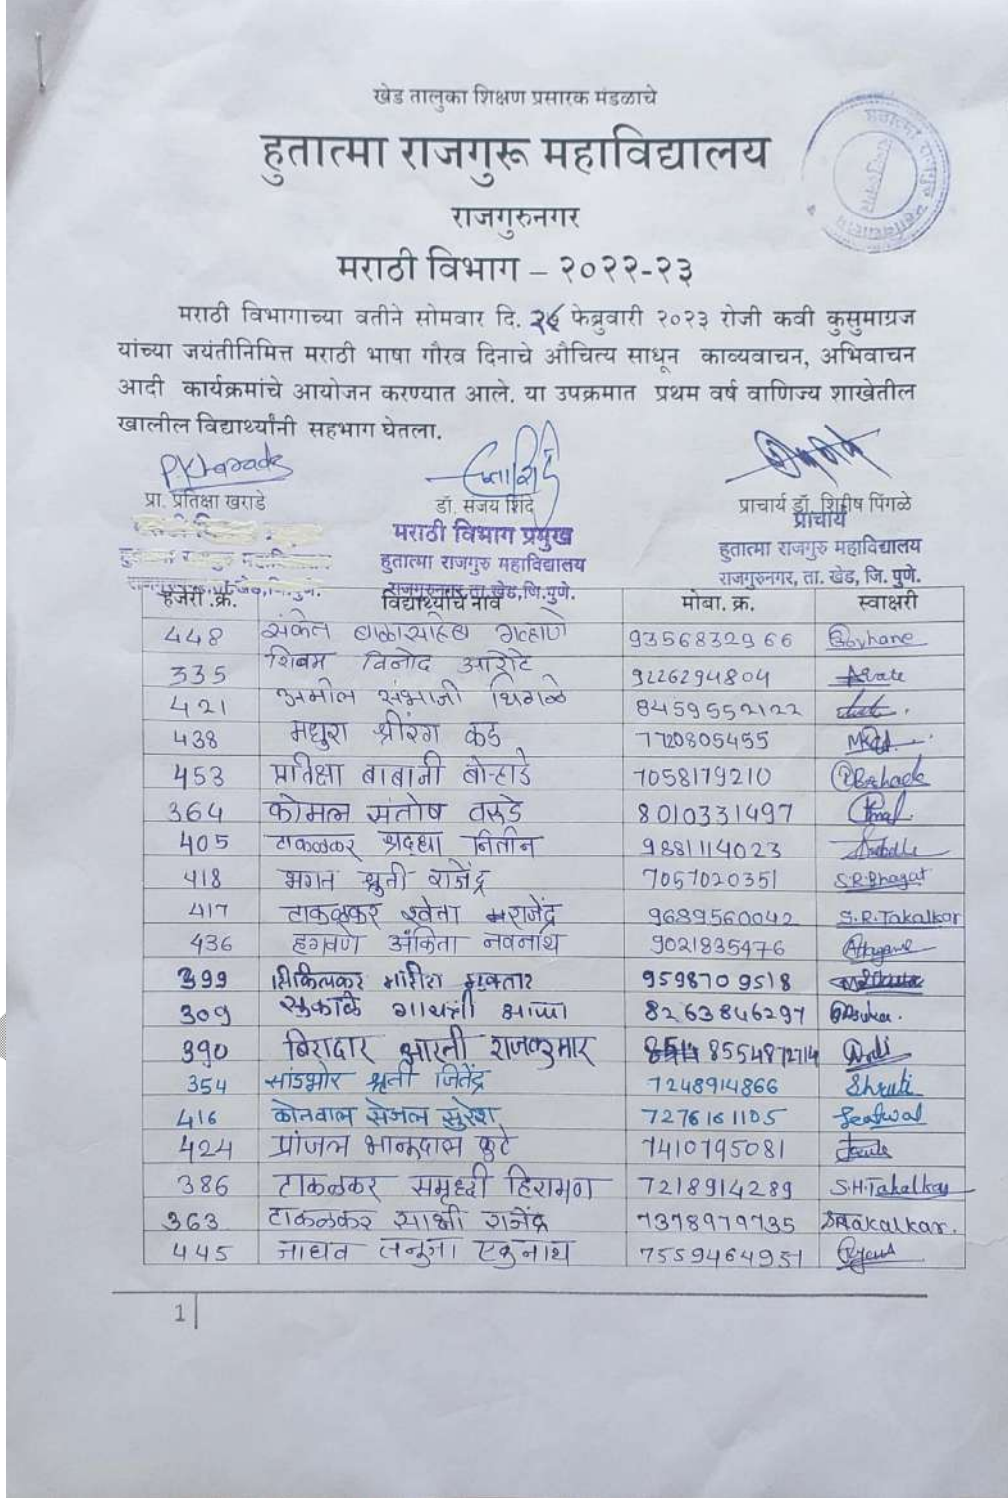 खेड तालुका शिक्षण प्रसारक मंडळाचे
हुतात्मा राजगुरू महाविद्यालय
राजगुरुनगर
मराठी विभाग – २०२२-२३
मराठी विभागाच्या वतीने सोमवार दि. फेब्रुवारी २०२३ रोजी कवी कुसुमाग्रज
यांच्या जयंतीनिमित्त मराठी भाषा गौरव दिनाचे औचित्य साधून काव्यवाचन, अभिवाचन
आदी कार्यक्रमांचे आयोजन करण्यात आले. या उपक्रमात प्रथम वर्ष वाणिज्य शाखेतील
खालील विद्यार्थ्यांनी सहभाग घेतला.
प्रा. प्रतिक्षा खराडे डॉ. संजय शिंदे प्राचार्य डॉ. शिरीष पिंगळे
मराठी विभाग प्रमुख प्राचार्य
हुतात्मा राजगुरु महाविद्यालय हुतात्मा राजगुरु महाविद्यालय
राजगुरुनगर, ता. खेड, जि. पुणे. राजगुरुनगर, ता. खेड, जि. पुणे.
हजेरी .क्र. विद्यार्थ्याचे नाव मोबा. क्र. स्वाक्षरी
448 संकेत बाळासाहेब गव्हाणे 9356832966 Govhane
335 शिवम विनोद आरोटे 9226294804
421 अमोल संभाजी थिगळे 8459552122
438 मधुरा श्रीरंग कड 7720805455
453 प्रतिक्षा बाबाजी बोऱ्हाडे 7058179210
364 कोमल संतोष वरुडे 8010331497
405 टाकळकर श्रद्धा नितीन 9881114023
418 भगत श्रुती राजेंद्र 7057020351 S.R.Bhagat
417 टाकळकर श्वेता राजेंद्र 9689560042 S.R.Takalkar
436 हगवणे अंकिता नवनाथ 9021835476
399 9598709518
309 गायत्री 8263846297
390 बिरादार आरती राजकुमार 8554872714
354 सांडभोर श्रुती जितेंद्र 7248914866 Shruti
416 कोतवाल सेजल सुरेश 7276161105
424 प्रांजल भानुदास कुटे 7410795081
386 टाकळकर समृध्दी हिरामण 7218914289 S.H.Takalkar
363 टाकळकर साक्षी राजेंद्र 7378979735 SRTakalkar.
445 जाधव तनुजा एकनाथ 7559464951
1